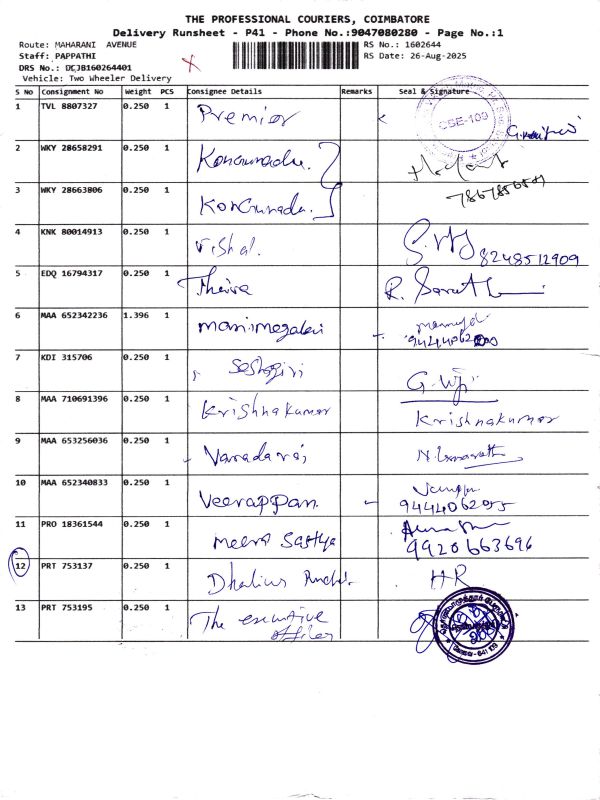 THE PROFESSIONAL COURIERS, COIMBATORE
Delivery Runsheet - P41 - Phone No.:9047080280 - Page No.:1
Route: MAHARANI AVENUE
RS No.: 1602644
Staff: PAPPATHI
RS Date: 26-Aug-2025
DRS No.: DCJB160264401
Vehicle: Two Wheeler Delivery
S No Consignment No Weight PCS Consignee Details Remarks Seal & Signature
1 TVL 8807327 0.250 1 Premier CBE-109
2 WKY 28658291 0.250 1 Kongunadu.
3 WKY 28663806 0.250 1 Kongunadu.
4 KNK 80014913 0.250 1 Vishal. 8248512909
5 EDQ 16794317 0.250 1 R.
6 MAA 652342236 1.396 1 manimegalai
7 KDI 315706 0.250 1 Seshagiri G. Viji
8 MAA 710691396 0.250 1 Krishnakumar Krishnakumar
9 MAA 653256036 0.250 1 Varadaraj
10 MAA 652340833 0.250 1 Veerappan. 9444062055
11 PRO 18361544 0.250 1 meera Sathya 9920663696
12 PRT 753137 0.250 1 HR
13 PRT 753195 0.250 1 The executive
officer